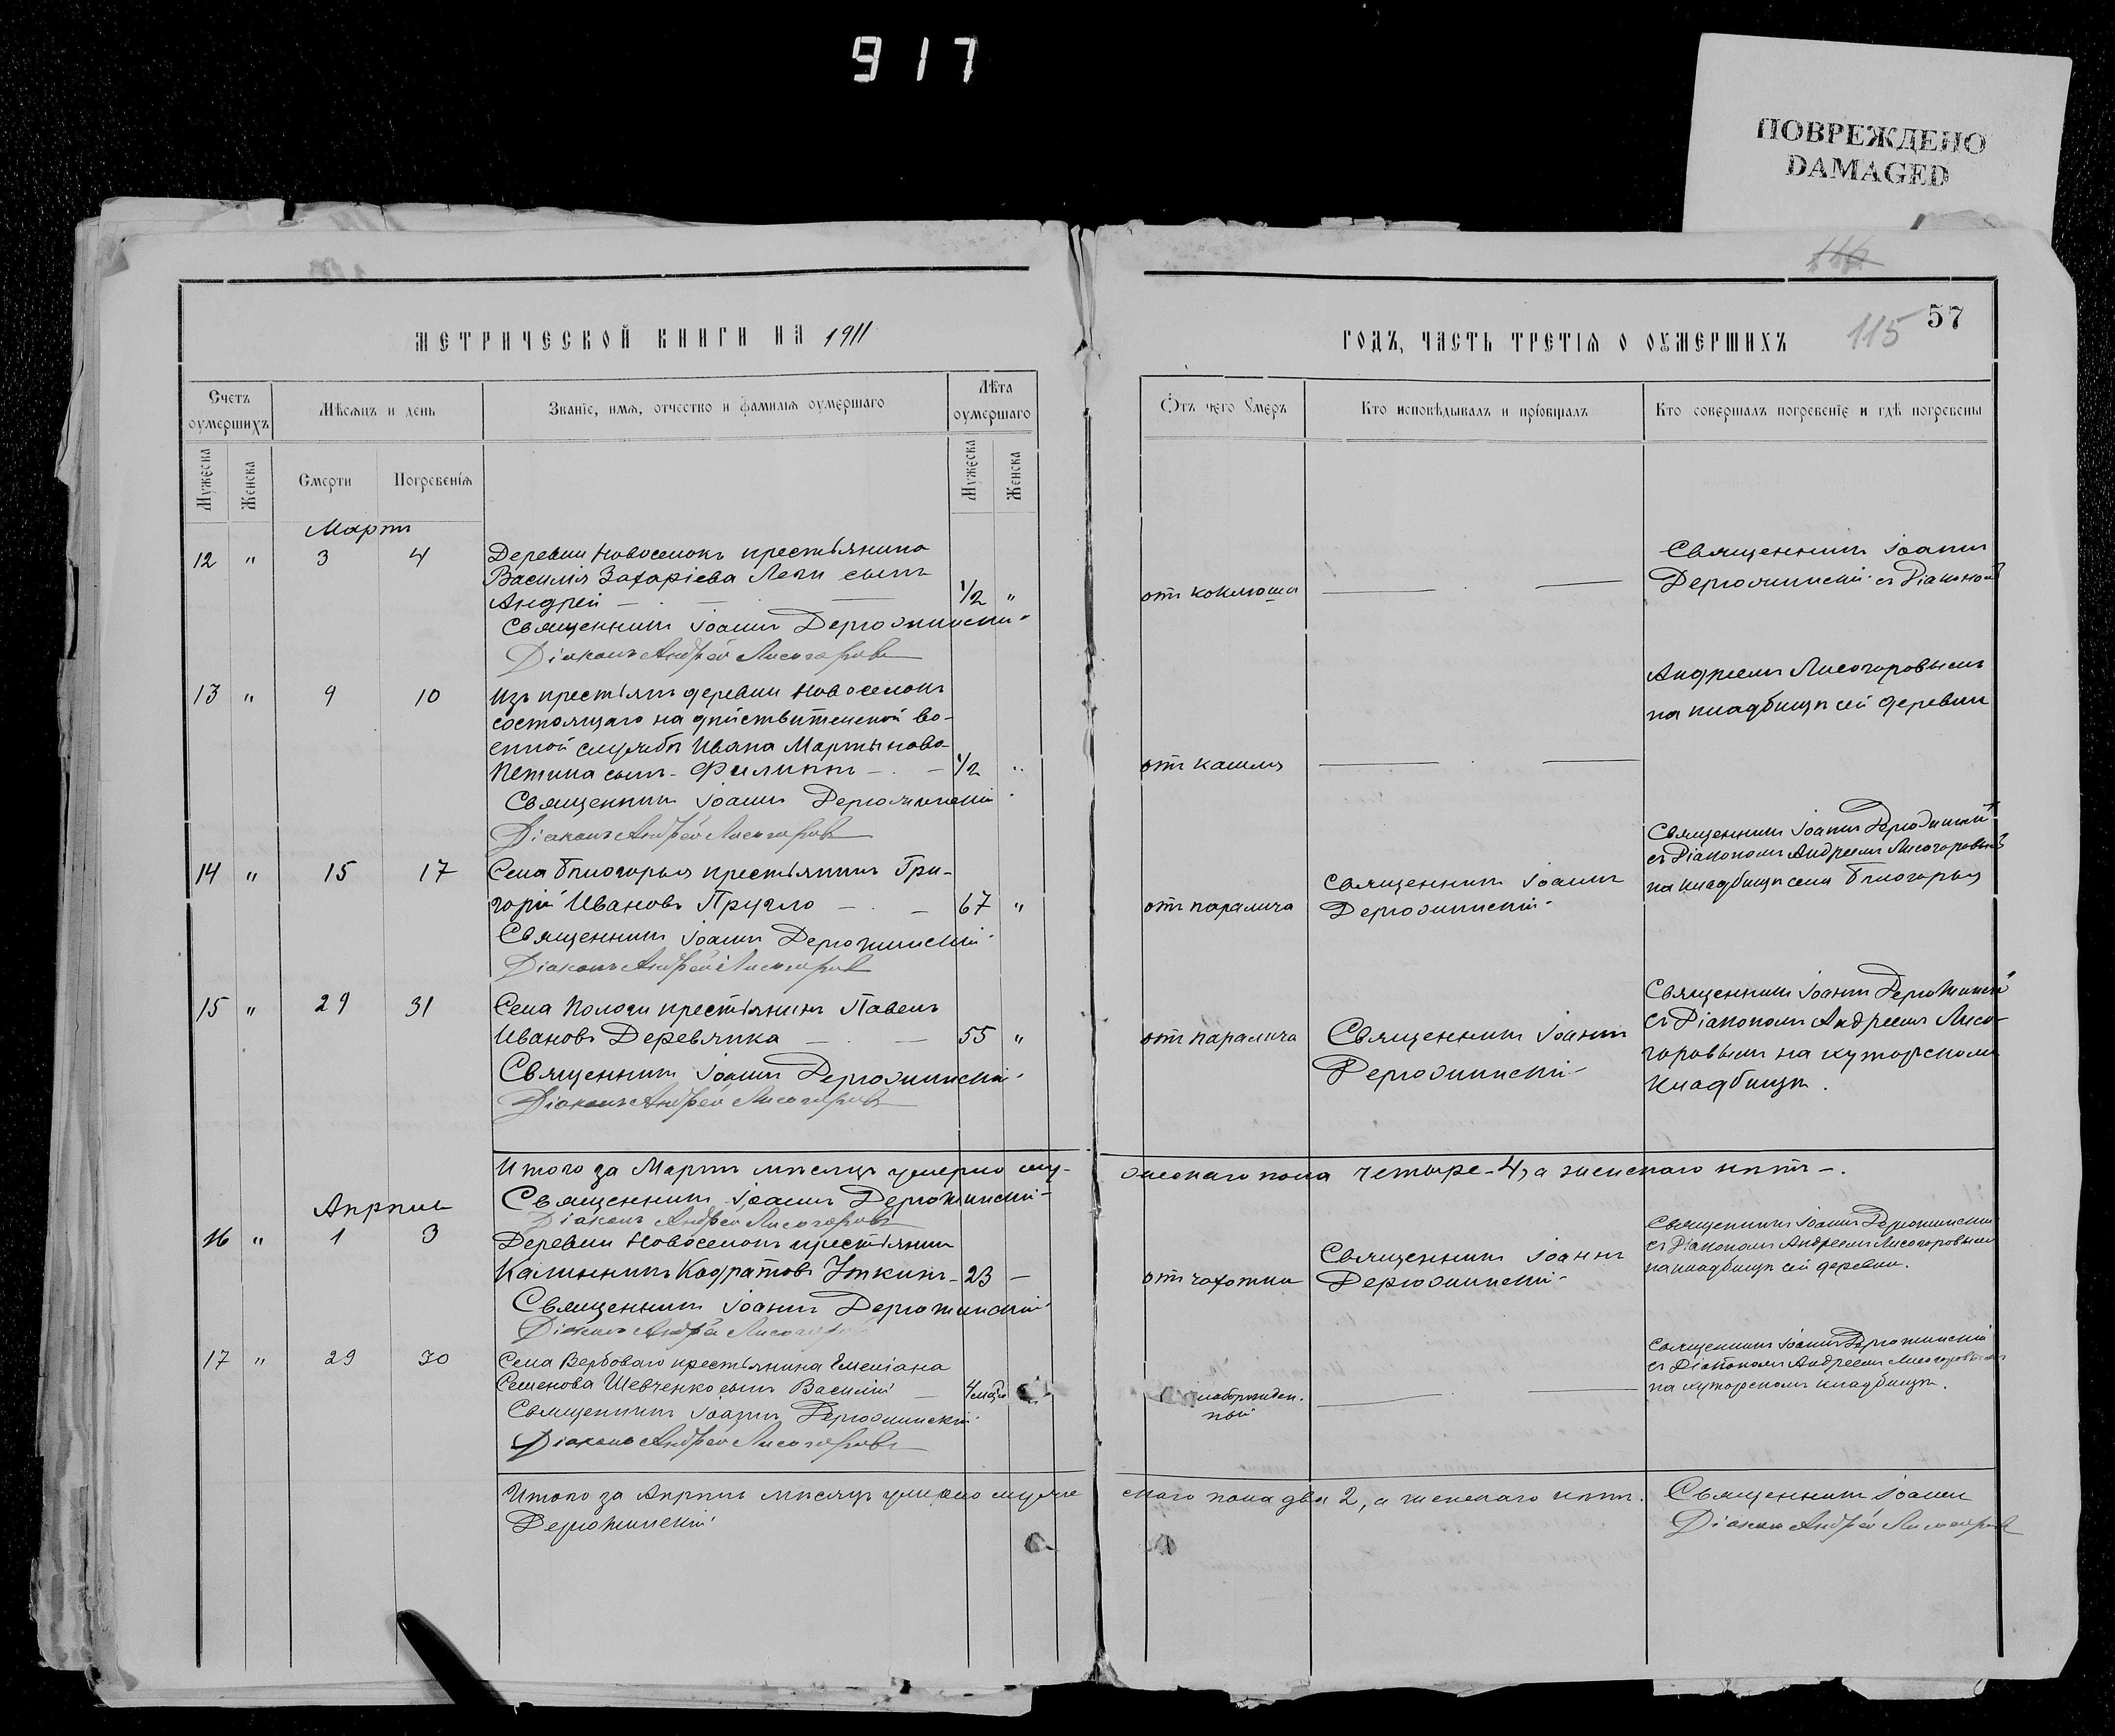 917
ПОВРЕЖДЕНО
DAMAGED
116
57
115
МЕТРИЧЕСКОЙ КНИГИ НА 1911
ГОДЪ, ЧАСТЬ ТРЕТІѦ О ОУМЕРШИХЪ
Счетъ оумершихъ
Мѣсяцъ и день
Званіе, имѧ, отчество и фамиліѧ оумершаго
Лѣта оумершаго
Ѿтъ чего Умеръ
Кто исповѣдывалъ и пріобщалъ
Кто совершалъ погребеніе и гдѣ погребены
Мужеска
Женска
Смерти
Погребеніѧ
Мужеска
Женска
Мартъ
12 " 3 4 Деревни Новоселокъ крестьянина
Василія Захаріева сынъ
Андрей 1/2 " отъ коклюша
Священникъ Іоаннъ
съ Діакономъ
Священникъ Іоаннъ
Діаконъ Андрей Лисогоровъ
Андреемъ Лисогоровымъ
на кладбищѣ сей деревни
13 " 9 10 Изъ крестьянъ деревни Новоселокъ
состоящаго на дѣйствительной во-
енной службѣ Ивана Мартынова
сынъ Филиппъ 1/2 " отъ кашля
Священникъ Іоаннъ
Діаконъ Андрей Лисогоровъ
14 " 15 17 Села Бѣлогорья крестьянинъ Гри-
горій Ивановъ Пругло 67 " отъ паралича
Священникъ Іоаннъ
Священникъ Іоаннъ
съ Діакономъ Андреемъ Лисогоровымъ
на кладбищѣ села Бѣлогорья
Священникъ Іоаннъ
Діаконъ Андрей Лисогоровъ
15 " 29 31 Села Пологи крестьянинъ Павелъ
Ивановъ Деревянка 55 " отъ паралича
Священникъ Іоаннъ
Священникъ Іоаннъ
съ Діакономъ Андреемъ Лисо-
горовымъ на хуторскомъ
кладбищѣ.
Священникъ Іоаннъ
Діаконъ Андрей Лисогоровъ
Итого за Мартъ мѣсяцъ умерло му-
жскаго пола четыре - 4, а женскаго нѣтъ -.
Священникъ Іоаннъ
Діаконъ Андрей Лисогоровъ
Апрѣль
16 " 1 3 Деревни Новоселокъ крестьянинъ
Уткинъ - 23 - отъ чахотки
Священникъ Іоаннъ
Священникъ Іоаннъ
съ Діакономъ Андреемъ Лисогоровымъ
на кладбищѣ сей деревни.
Священникъ Іоаннъ
Діаконъ Андрей
17 " 29 30 Села Вербоваго крестьянина Емеліана
Семенова Шевченко сынъ Василій
слаборожден-
ный
Священникъ Іоаннъ
съ Діакономъ Андреемъ Лисогоровымъ
на хуторскомъ кладбищѣ.
Священникъ Іоаннъ
Діаконъ Андрей Лисогоровъ
Итого за Апрѣль мѣсяцъ умерло муже-
скаго пола два 2, а женскаго нѣтъ. Священникъ Іоаннъ
Діаконъ Андрей Лисогоровъ